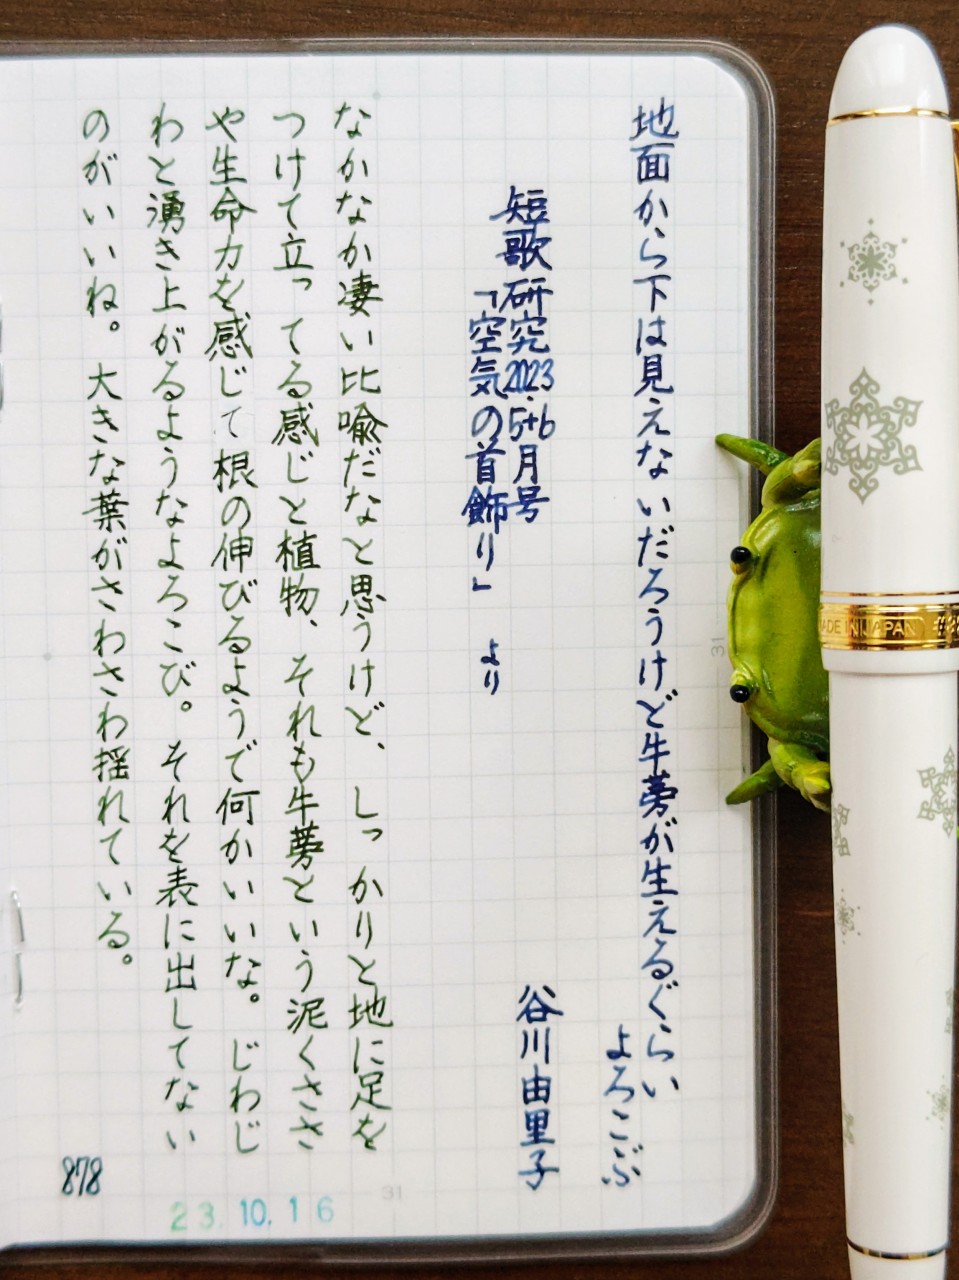 地面から下は見えないだろうけど牛蒡が生えるぐらい
よろこぶ
谷川由里子
短歌研究2023.5+6月号
「空気の首飾り」 より
なかなか凄い比喩だなと思うけど、しっかりと地に足を
つけて立ってる感じと植物、それも牛蒡という泥くささ
や生命力を感じて根の伸びるようで何かいいな。じわじ
わと湧き上がるようなよろこび。それを表に出してない
のがいいね。大きな葉がさわさわ揺れている。
878
23.10.16
31
31
MADE IN JAPAN